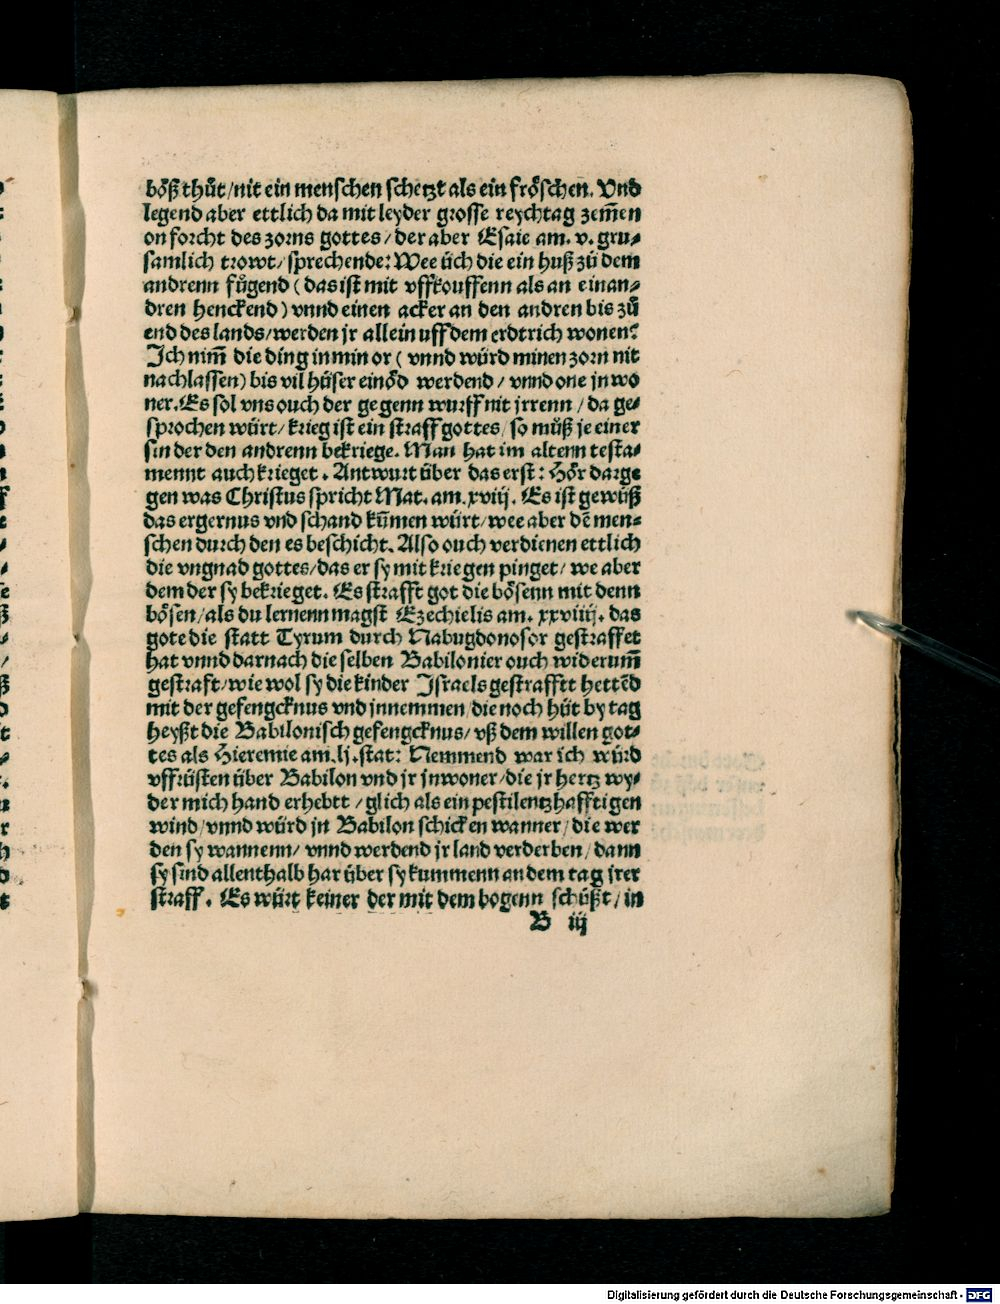 böß thůt/nit ein menschen schetzt als ein fröschen. Vnd
legend aber ettlich da mit leyder grosse reychtag zem̃en
on forcht des zorns gottes/der aber Esaie am. v. gru⸗
samlich trowt/sprechende: Wee üch die ein huß zů dem
andrenn fůgend (das ist mit vffkouffenn als an einan⸗
dren henckend) vnnd einen acker an den andren bis zů
end des lands/werden jr allein uff dem erdtrich wonen?
Ich nim̃ die ding in min or (vnnd würd minen zorn nit
nachlassen) bis vil hüser einöd werdend/vnnd one jnwo
ner. Es sol vns ouch der gegenn wurff nit jrrenn/da ge⸗
sprochen würt/krieg ist ein straff gottes/so můß je einer
sin der den andrenn bekriege. Man hat im altenn testa⸗
mennt auch krieget. Antwurt über das erst: Hör darge
gen was Christus spricht Mat. am. xviij. Es ist gewüß
das ergernus vnd schand kum̃en würt/wee aber dẽ men⸗
schen durch den es beschicht. Also ouch verdienen ettlich
die vngnad gottes/das er sy mit kriegen pinget/we aber
dem der sy bekrieget. Es strafft got die bösenn mit denn
bösen/als du lernenn magst Ezechielis am. xxviiij. das
gote die statt Tyrum durch Nabugdonosor gestraffet
hat vnnd darnach die selben Babilonier ouch widerum̃
gestraft/wie wol sy die kinder Israels gestrafftt hettẽd
mit der gefengcknus vnd jnnemmen/die noch hüt by tag
heyßt die Babilonisch gefengcknus/vß dem willen got⸗
tes als Hieremie am. lj. stat: Nemmend war ich würd
vffrüsten über Babilon vnd jr jnwoner/die jr hertz wy⸗
der mich hand erhebtt/glich als ein pestilentzhafftigen
wind/vnnd würd jn Babilon schicken wanner/die wer
den sy wannenn/vnnd werdend jr land verderben/dann
sy sind allenthalb har über sy kummenn an dem tag jrer
straff. Es würt keiner der mit dem bogenn schüßt/in
B iij
Digitalisierung gefördert durch die Deutsche Forschungsgemeinschaft - DFG